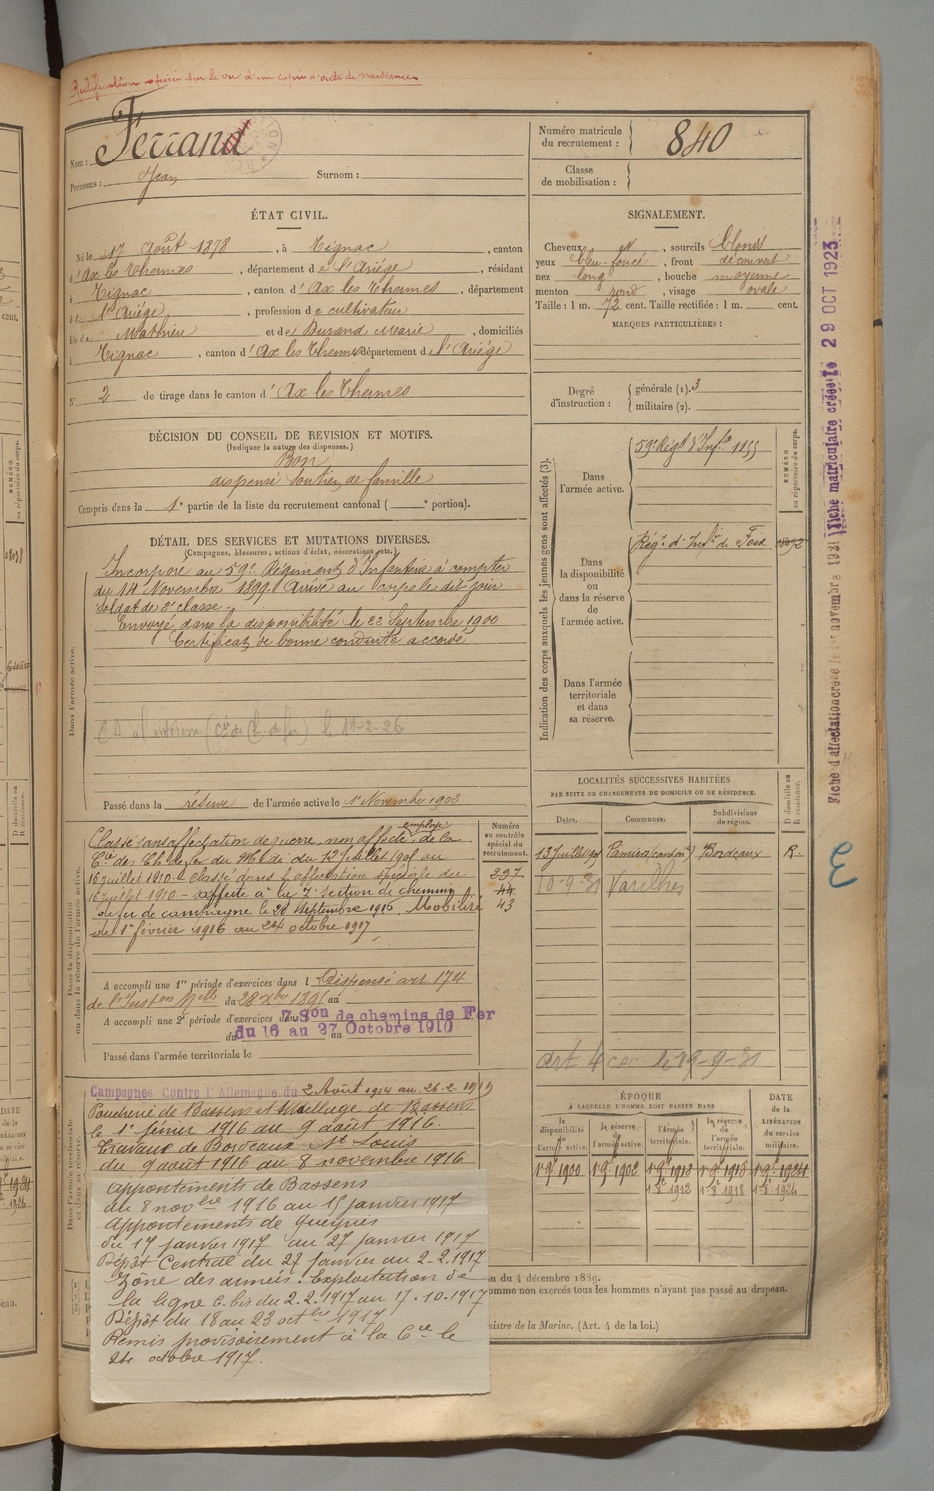 Rectification opérée sur le vu d'une copie d'acte de naissance
Nom : Ferrand
Prénoms : Jean Surnom :
Numéro matricule du recrutement : 840
Classe de mobilisation :
ÉTAT CIVIL.
Né le 17 Août 1878, à Tignac, canton
d'Ax les Thermes, département de l'Ariége, résidant
à Tignac, canton d'Ax les Thermes, département
de l'Ariége, profession de cultivateur
fils de Mathieu et de Durand Marie, domiciliés
à Tignac, canton d'Ax les Thermes département de l'Ariége
N° 2 de tirage dans le canton d'Ax les Thermes
SIGNALEMENT.
Cheveux et, sourcils blonds
yeux bleu foncé, front découvert
nez long, bouche moyenne
menton rond, visage ovale
Taille : 1 m. 72 cent. Taille rectifiée : 1 m. cent.
MARQUES PARTICULIÈRES :
Degré d'instruction : générale (1). 3
militaire (2).
DÉCISION DU CONSEIL DE REVISION ET MOTIFS.
(Indiquer la nature des dispenses.)
Bon
dispensé soutien de famille
Compris dans la 1e partie de la liste du recrutement cantonal ( e portion).
DÉTAIL DES SERVICES ET MUTATIONS DIVERSES.
(Campagnes, blessures, actions d'éclat, décorations, etc.)
Dans l'armée active.
Incorporé au 59e Régiment d'Infanterie à compter
du 14 Novembre 1899. Arrivé au corps le dit jour
soldat de 2e classe.
Envoyé dans la disponibilité le 22 Septembre 1900
Certificat de bonne conduite accordé
(Cie de Ch. de fer) le 12-2-26
Passé dans la réserve de l'armée active le 1er Novembre 1902
Indication des corps auxquels les jeunes gens sont affectés (3).
NUMÉRO au répertoire du corps.
Dans l'armée active.
59e Régt d'Infie 1155
Dans la disponibilité ou dans la réserve de l'armée active.
Régt d'Infie de Foix
Dans l'armée territoriale et dans sa réserve.
Fiche matriculaire créée le 29 OCT 1923
LOCALITÉS SUCCESSIVES HABITÉES
PAR SUITE DE CHANGEMENTS DE DOMICILE OU DE RÉSIDENCE.
Dates. Communes. Subdivisions de région. D domicile ou R résidence.
13 Juillet 1901 Pamiers (cantonr) Bordeaux R.
10-9-31 Varilhes
Dans la disponibilité ou dans la réserve de l'armée active.
Numéro au contrôle spécial du recrutement.
Classé sans affectation de guerre, non affecté, employé de la
Cie des Ch. de fer du Midi du 12 Juillet 1901 au
16 Juillet 1910 - Classé dans l'affectation spéciale du 297
16 Juillet 1910 - affecté à la 7e section de chemins 44
de fer de campagne le 20 septembre 1916. Mobilisé 43
du 1er février 1916 au 24 octobre 1917
A accompli une 1re période d'exercices dans l Dispensé art 174
de l'Inston Melle du 28 Xbre 1895 au
A accompli une 2e période d'exercices dans 7 Son de chemins de Fer
du 16 au 27 Octobre 1910
Passé dans l'armée territoriale le
Art 4 le 19-9-31
Dans l'armée territoriale et dans sa réserve.
Campagnes Contre l'Allemagne du 2 Août 1914 au 26-2-1919
Poudrerie de Bassens et Mélinge de Bassens
le 1er février 1916 au 9 août 1916.
Travaux de Bordeaux St Louis
du 9 août 1916 au 8 novembre 1916
appontements de Bassens
du 8 novbre 1916 au 15 janvier 1917
appontements de Queyries
du 17 janvier 1917 au 27 janvier 1917
Dépôt Central du 27 janvier au 2-2-1917
Zône des armées : Exploitation de
la ligne 6. bis du 2.2.1917 au 17.10.1917
Dépôt du 18 au 23 octbre 1917
Remis provisoirement à la Cie le
24 octobre 1917.
ÉPOQUE
À LAQUELLE L'HOMME DOIT PASSER DANS
la disponibilité de l'armée active. la réserve de l'armée active. l'armée territoriale. la réserve de l'armée territoriale.
DATE de la LIBÉRATION du service militaire.
1er 9bre 1900 1er 9bre 1902 1er 9bre 1912 1er 9bre 1918 1er 9bre 1924
1-8e 1912 1-8e 1918 1-8e 1924
on du 4 décembre 1889.
omme non exercés tous les hommes n'ayant pas passé au drapeau.
inistre de la Marine. (Art. 4 de la loi.)